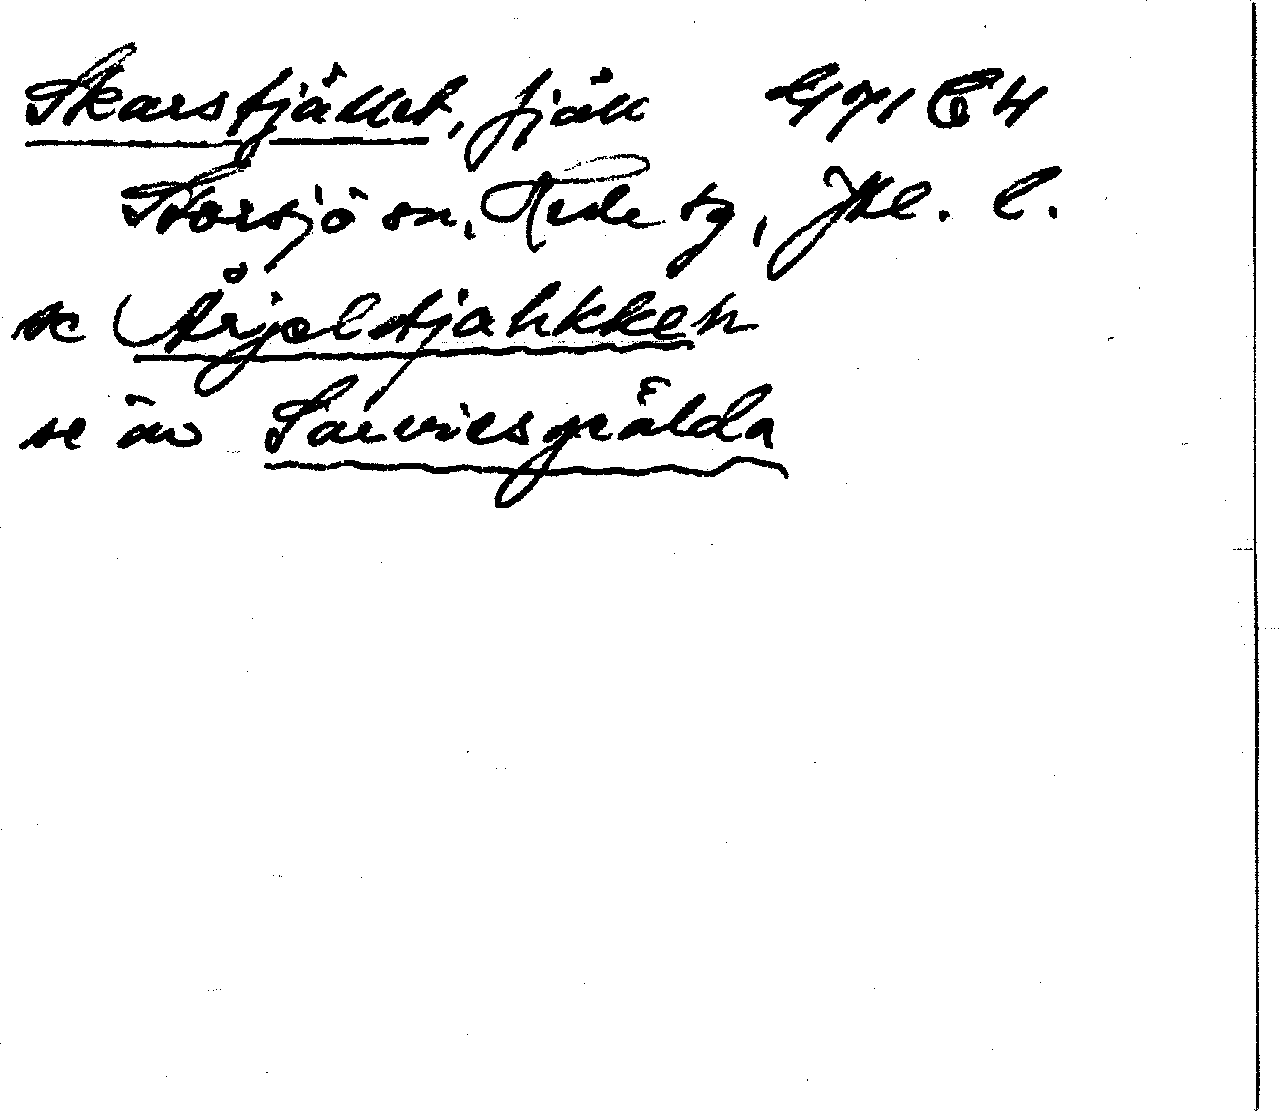 Skarsfjället, fjäll
Storsjö sn, Hede tg, Jtl. l.
se Årjel tjahkken
se äv Sarviesgiälda